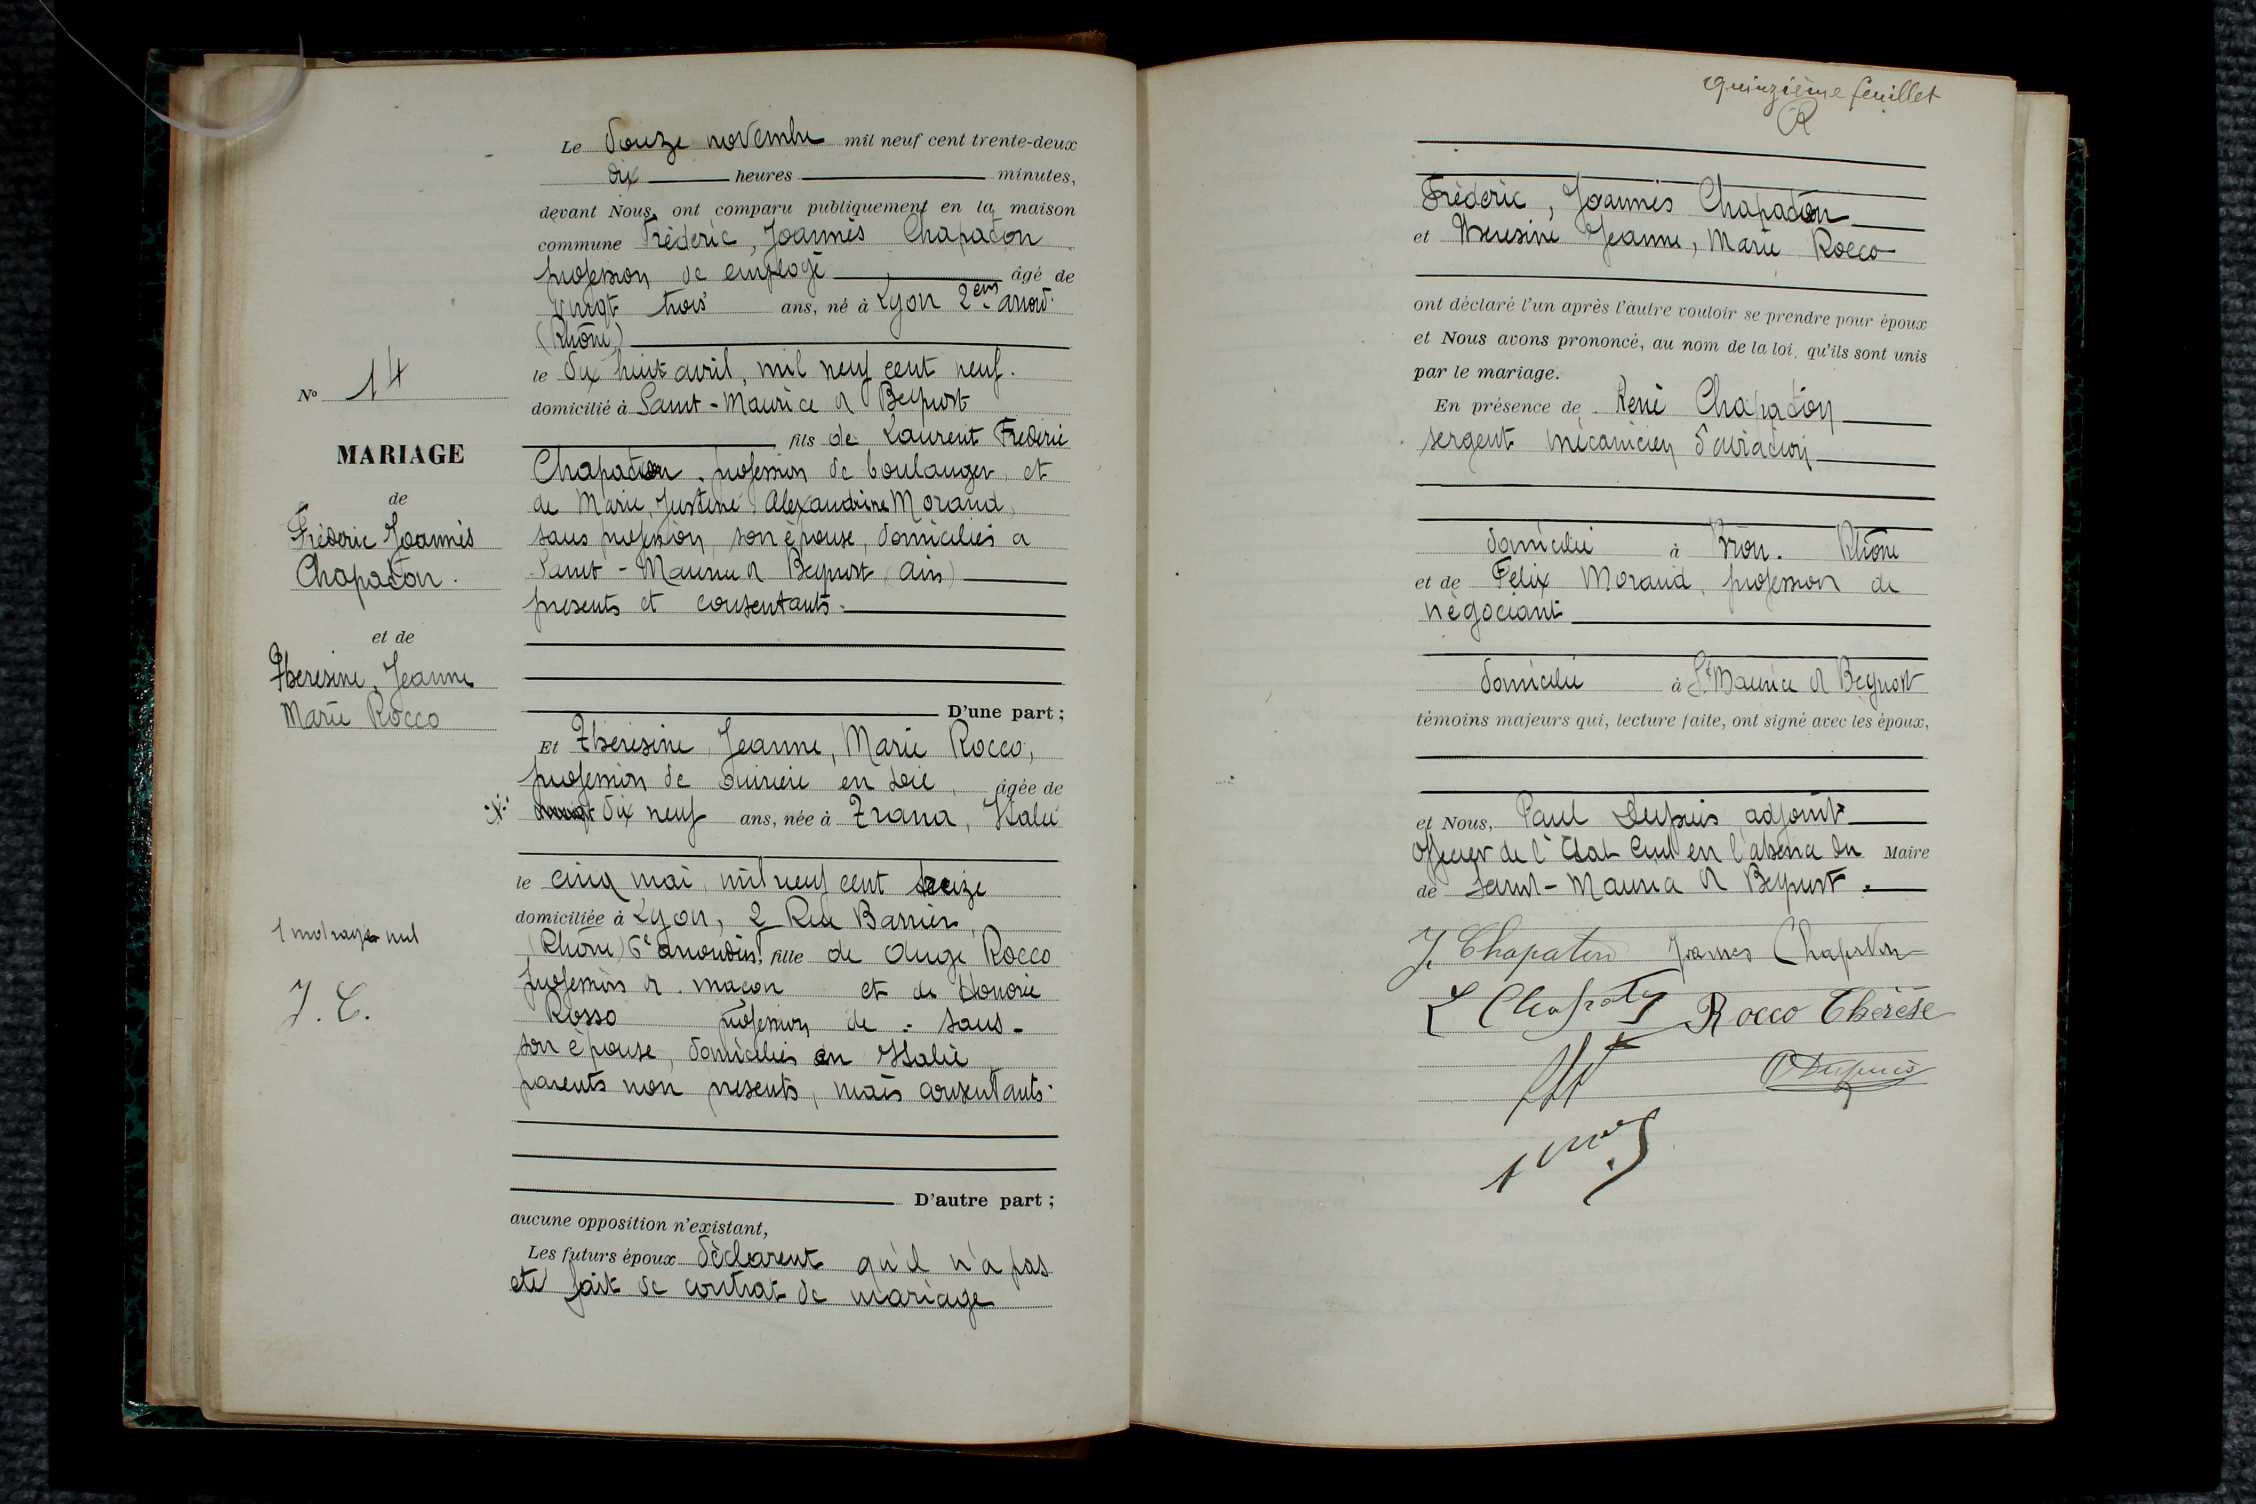 Le douze novembre mil neuf cent trente-deux
dix heures minutes,
devant Nous, ont comparu publiquement en la maison
commune Fréderic, Joannès Chapaton
profession de employé âgé de
vingt trois ans, né à Lyon 2em arrond.
(Rhône)
le dix huit avril, mil neuf cent neuf.
domicilié à Saint-Maurice d Beynost
fils de Laurent Frederic
Chapaton, profession de boulanger, et
de Marie, Justine Alexandrine Morand,
sans profession, son épouse, domiciliés a
Saint-Maurice d Beynost (Ain)
presents et consentants.
D'une part ;
Et Théresine, Jeanne, Marie Rocco,
profession de ouvrière en soie, âgée de
dix neuf ans, née à Trana, Italie
le cinq mai, mil neuf cent treize
domiciliée à Lyon, 2 Rue Barrier,
(Rhône) 6e arrondis! fille de Ange Rocco
profession d. maçon et de Honorée
Rosso profession de - sans -
son épouse, domiciliés en Italie
parents non presents, mais consentants.
D'autre part ;
aucune opposition n'existant,
Les futurs époux déclarent qu'il n'a pas
eté fait de contrat de mariage
No 14
MARIAGE
de
Fréderic Joannès
Chapaton.
et de
Théresine, Jeanne
Marie Rocco
1 mot rayé nul
J. C.
quinzième feuillet
R
Fréderic, Joannès Chapaton
et Théresine Jeanne, Marie Rocco
ont déclaré l'un après l'autre vouloir se prendre pour époux
et Nous avons prononcé, au nom de la loi, qu'ils sont unis
par le mariage.
En présence de René Chapaton
sergent mécanicien d'aviation
domicilié à Bron. Rhône
et de Felix Morand, profession de
négociant
domicilié à St Maurice d Beynost
témoins majeurs qui, lecture faite, ont signé avec les époux,
et Nous, Paul Dupuis adjoint
officier de l'Etat Civil en l'absence du Maire
de Saint-Maurice d Beynost.
J. Chapaton Joannes Chapaton
L Chapaton Rocco Thérèse
P Dupuis